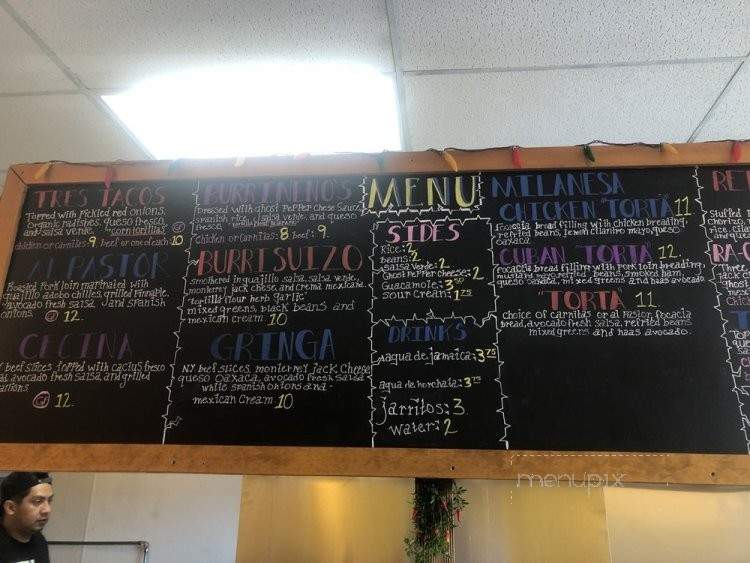 TRES TACOS
Topped with pickled red onions,
organic radishes, queso fresco,
and salsa verde. 4 corn tortillas
chicken or carnitas: 9 beef or one of each 10
AL PASTOR
Roasted Pork loin marinated with
guajillo adobo chilies, grilled Pinnaple,
avocado fresh salsa, and spanish
onions. 12.
CECINA
NY beef slices, topped with
avocado fresh salsa, and grilled
12.
dressed with ghost pepper cheese sauce,
spanish rice, salsa verde, and queso
fresco,
chicken or carnitas: 8. beef: 9.
BURRISUIZO
smothered in guajillo salsa, salsa verde,
monterrey jack cheese, and crema mexicana.
"tortilla flour herb garlic"
mixed greens, black beans and
mexican cream. 10
GRINGA
N.Y beef slices, monterrey Jack cheese
queso oaxaca, avocado fresh salsa
white spanish onions and
mexican cream. 10
MENU
SIDES
Rice: 2
beans: 2
salsa verde: 2
Ghost Pepper cheese: 2
Guacamole: 3.50
sour cream: 1.25
DRINKS
agua de jamaica: 3.75
agua de horchata: 3.75
jarritos: 3
water: 2
MILANESA
CHICKEN "TORTA" 11
focaccia bread filling with chicken breading,
refried beans, lemon cilantro mayo, queso
oaxaca
CUBAN "TORTA" 12
focaccia bread filling with pork loin breading,
mustard mayo, refried beans, smoked ham,
queso oaxaca, mixed greens and haas avocado
"TORTA" 11
choice of carnitas or al pastor focacia
bread, avocado fresh salsa, refried beans
mixed greens and haas avocado.
menupix